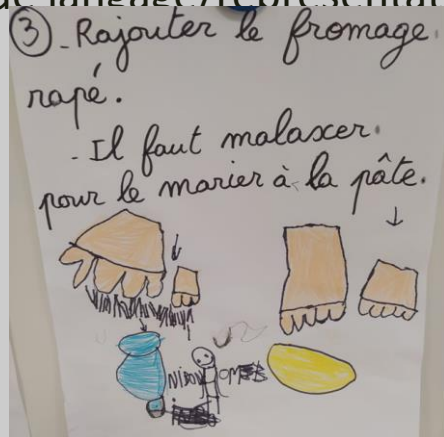 ③ - Rajouter le fromage
rapé.
- Il faut malaxer
pour le marier à la pâte.